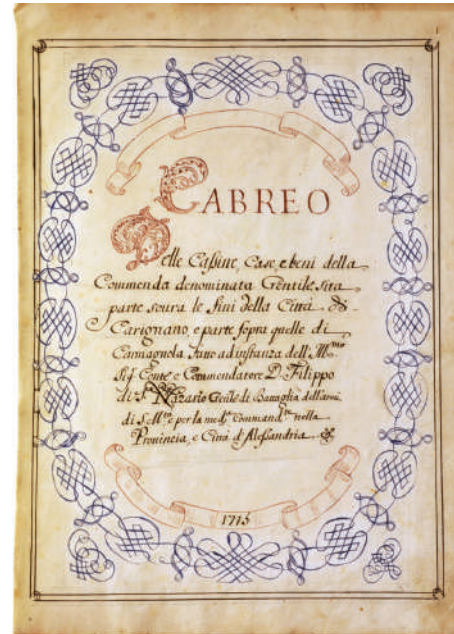 CABREO
Delle Cassine, Case, e beni della
Commenda denominata Gentile sita
parte soura le fini della Città di
Carignano, e parte sopra quelle di
Carmagnola fatto ad instanza dell' Ill.mo
Sig.r Conte, e Commendatore D. Filippo
di S. Nazario Gentile di
di S.e M.tà e per la med.ma nella
Prouincia, e Città d'Alessandria
1715